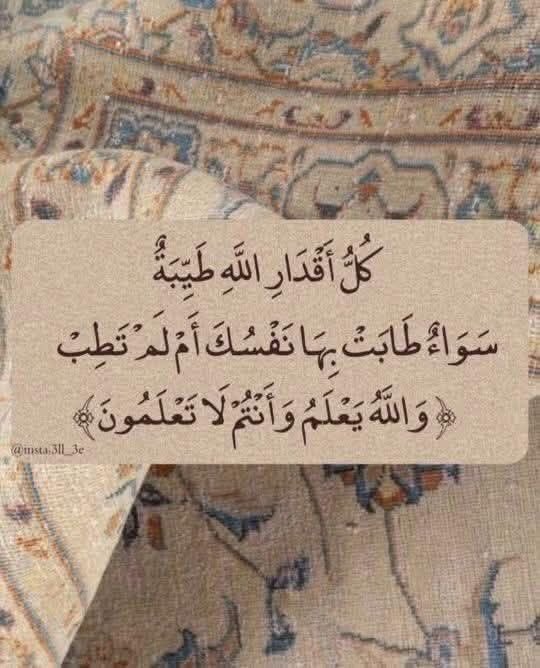 كُلُّ أَقْدَارِ اللَّهِ طَيِّبَةٌ
سَوَاءٌ طَابَتْ بِهَا نَفْسُكَ أَمْ لَمْ تَطِبْ
﴿وَاللَّهُ يَعْلَمُ وَأَنْتُمْ لَا تَعْلَمُونَ﴾